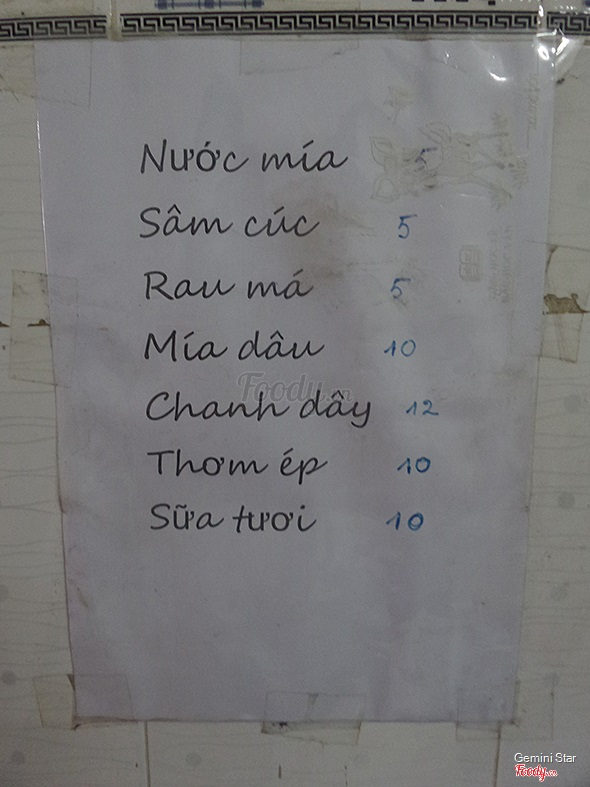 Nước mía 5
Sâm cúc 5
Rau má 5
Mía dâu 10
Foody.vn
Chanh dây 12
Thơm ép 10
Sữa tươi 10
Gemini Star
Foody.vn